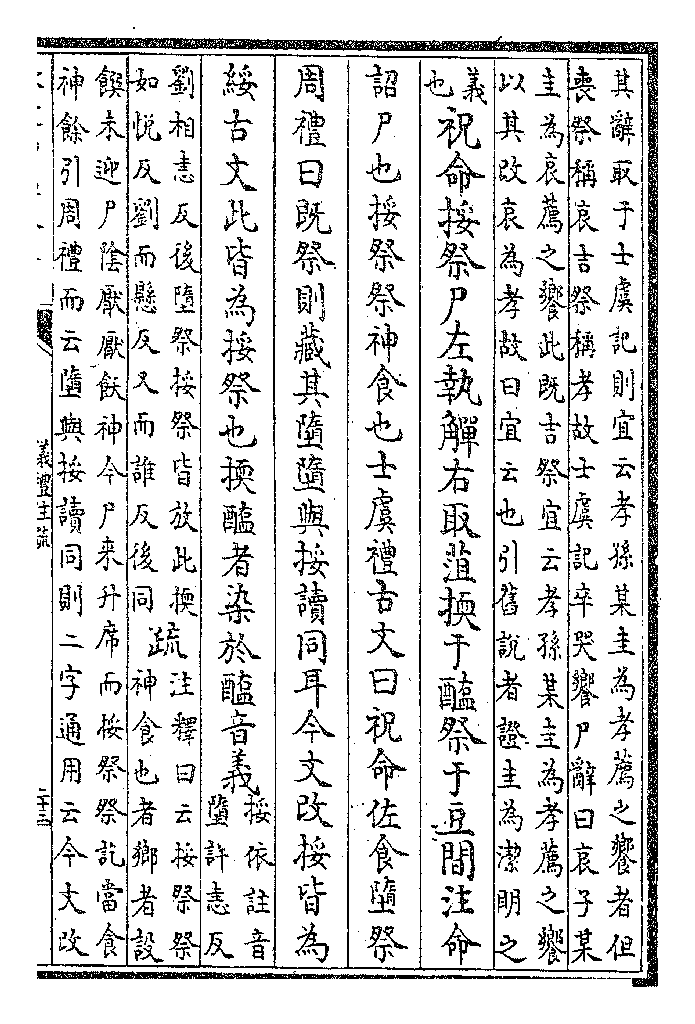 其辭取于士虞記則宜云孝孫某圭為孝薦之饗者但
喪祭稱哀吉祭稱孝故士虞記卒哭饗尸辭曰哀子某
圭為哀薦之饗此既吉祭宜云孝孫某圭為孝薦之饗
以其改哀為孝故曰宜云也引舊說者證圭為潔明之
義也祝命挼祭尸左執觶右取菹㨎于醢祭于豆間注命
詔尸也挼祭祭神食也士虞禮古文曰祝命佐食墮祭
周禮曰既祭則藏其墮墮與挼讀同耳今文改挼皆為
綏古文此皆為挼祭也㨎醢者染於醢音義挼依註音墮許恚反
劉相恚反後墮祭挼祭皆放此㨎
如悦反劉而懸反又而誰反後同
疏注釋曰云挼祭祭
神食也者鄉者設
饌未迎尸陰厭厭飫神今尸来升席而挼祭祭訖當食
神餘引周禮而云墮與挼讀同則二字通用云今文改
二十三